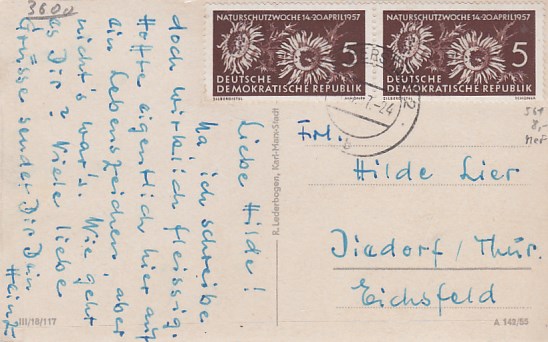 3600
Liebe Hilde!
Na ich schreibe
doch wirklich fleissig.
Hoffe eigentlich hier auf
ein Lebenszeichen, aber
nicht's war's. Wie geht
es Dir? Viele liebe
Grüsse sendet Dir Dein
Heinz
III/18/117
R. Lederbogen, Karl-Marx-Stadt
NATURSCHUTZWOCHE 14-20 APRIL 1957
5
DEUTSCHE
DEMOKRATISCHE REPUBLIK
SILBERDISTEL
NATURSCHUTZWOCHE 14-20 APRIL 1957
5
DEUTSCHE
DEMOKRATISCHE REPUBLIK
SILBERDISTEL
-24
561
8,-
Frl.
Hilde Lier
Diedorf/Thür.
Eichsfeld
A 142/55